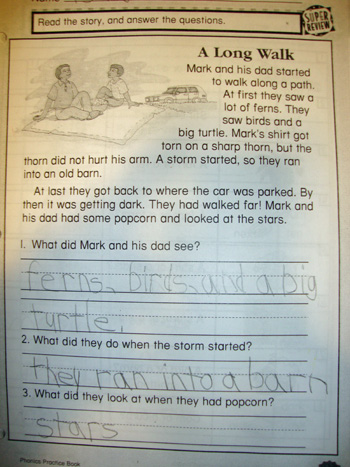 Name
Read the story, and answer the questions.
SUPER
REVIEW
A Long Walk
Mark and his dad started
to walk along a path.
At first they saw a
lot of ferns. They
saw birds and a
big turtle. Mark's shirt got
torn on a sharp thorn, but the
thorn did not hurt his arm. A storm started, so they ran
into an old barn.
At last they got back to where the car was parked. By
then it was getting dark. They had walked far! Mark and
his dad had some popcorn and looked at the stars.
1. What did Mark and his dad see?
ferns, birds, and a big
turtle.
2. What did they do when the storm started?
they ran into a barn
3. What did they look at when they had popcorn?
stars
Phonics Practice Book